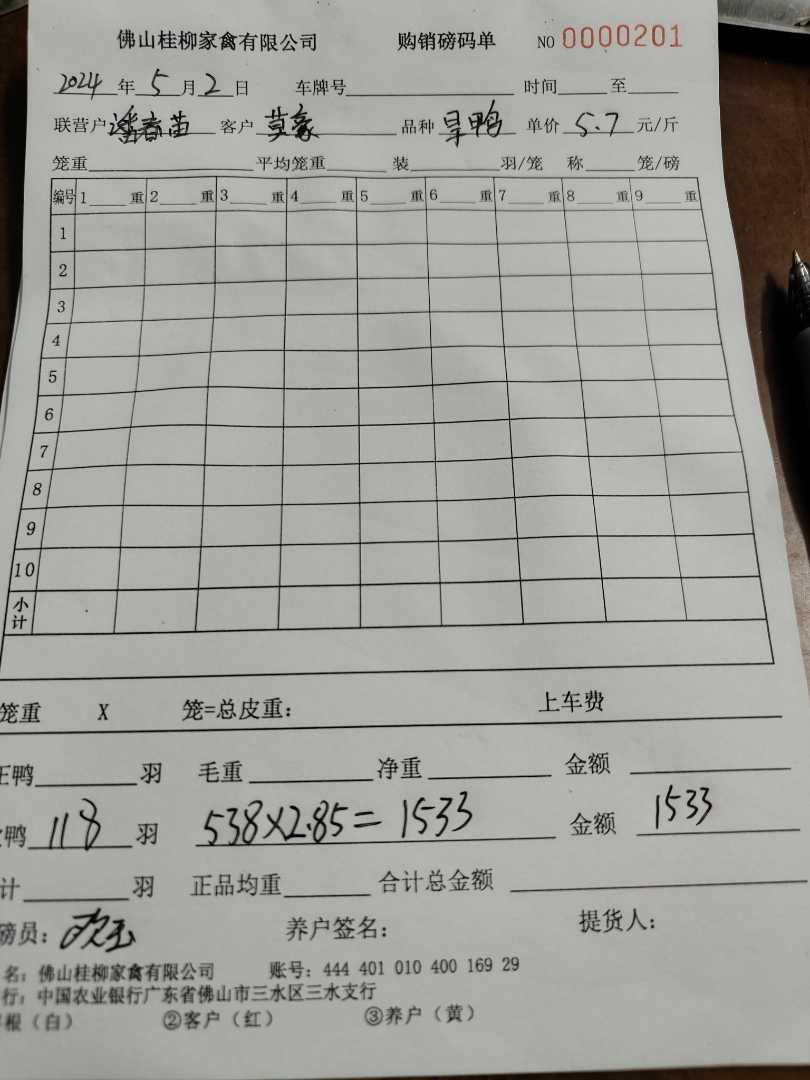 佛山桂柳家禽有限公司 购销磅码单 NO 0000201
2024年5月2日 车牌号 时间 至
联营户潘春苗 客户 莫豪 品种 旱鸭 单价 5.7 元/斤
笼重 平均笼重 装 羽/笼 称 笼/磅
编号 1 重 2 重 3 重 4 重 5 重 6 重 7 重 8 重 9 重
1
2
3
4
5
6
7
8
9
10
小计
笼重 X 笼=总皮重: 上车费
正鸭 羽 毛重 净重 金额
鸭 118 羽 538×2.85=1533 金额 1533
计 羽 正品均重 合计总金额
磅员: 养户签名: 提货人:
名: 佛山桂柳家禽有限公司 账号: 444 401 010 400 169 29
行: 中国农业银行广东省佛山市三水区三水支行
根（白） ②客户（红） ③养户（黄）